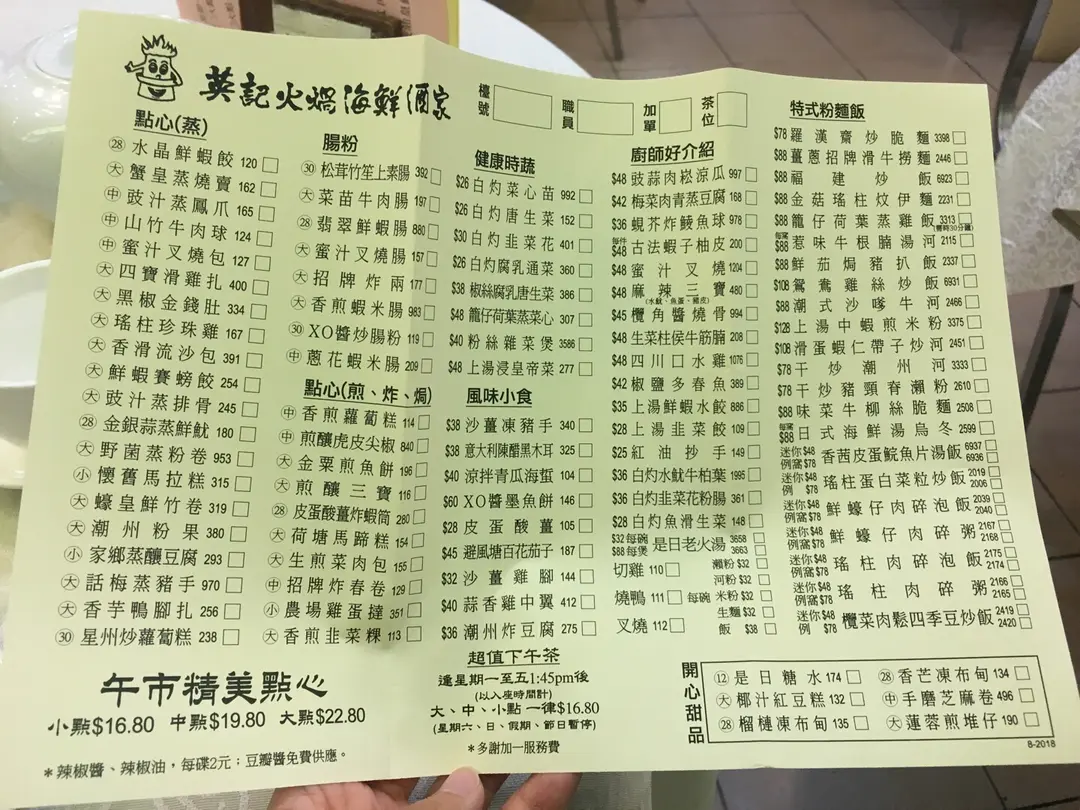 英記火鍋海鮮酒家
檯號
職員
加單
茶位
點心(蒸)
28 水晶鮮蝦餃 120
大 蟹皇蒸燒賣 162
中 豉汁蒸鳳爪 165
中 山竹牛肉球 124
中 蜜汁叉燒包 127
大 四寶滑雞扎 400
大 黑椒金錢肚 334
大 瑤柱珍珠雞 167
大 香滑流沙包 391
大 鮮蝦賽螃餃 254
大 豉汁蒸排骨 245
28 金銀蒜蒸鮮魷 180
大 野菌蒸粉卷 953
小 懷舊馬拉糕 315
大 蠔皇鮮竹卷 319
大 潮州粉果 380
小 家鄉蒸釀豆腐 293
大 話梅蒸豬手 970
大 香芋鴨腳扎 256
30 星州炒蘿蔔糕 238
腸粉
30 松茸竹笙上素腸 392
大 菜苗牛肉腸 197
28 翡翠鮮蝦腸 880
大 蜜汁叉燒腸 157
大 招牌炸兩 177
大 香煎蝦米腸 983
30 XO醬炒腸粉 119
中 蔥花蝦米腸 209
點心(煎、炸、焗)
中 香煎蘿蔔糕 114
中 煎釀虎皮尖椒 840
大 金粟煎魚餅 196
大 煎釀三寶 116
28 皮蛋酸薑炸蝦筒 280
大 荷塘馬蹄糕 154
大 生煎菜肉包 155
中 招牌炸春卷 129
小 農場雞蛋撻 351
大 香煎韭菜粿 113
健康時蔬
$26 白灼菜心苗 992
$26 白灼唐生菜 152
$30 白灼韭菜花 401
$26 白灼腐乳通菜 360
$38 椒絲腐乳唐生菜 386
$48 籠仔荷葉蒸菜心 307
$40 粉絲雜菜煲 3586
$48 上湯浸皇帝菜 277
風味小食
$38 沙薑凍豬手 340
$38 意大利陳醋黑木耳 325
$40 涼拌青瓜海蜇 104
$60 XO醬墨魚餅 146
$28 皮蛋酸薑 105
$45 避風塘百花茄子 187
$32 沙薑雞腳 144
$40 蒜香雞中翼 412
$36 潮州炸豆腐 275
廚師好介紹
$48 豉蒜肉崧涼瓜 997
$42 梅菜肉青蒸豆腐 168
$36 蜆芥炸鯪魚球 978
每件$48 古法蝦子柚皮 200
$48 蜜汁叉燒 1204
$48 麻辣三寶 480
(水魷、魚蛋、豬皮)
$45 欖角醬燒骨 994
$48 生菜柱侯牛筋腩 208
$48 四川口水雞 1076
$42 椒鹽多春魚 389
$35 上湯鮮蝦水餃 886
$28 上湯韭菜餃 109
$25 紅油抄手 149
$36 白灼水魷牛柏葉 1995
$36 白灼韭菜花粉腸 361
$28 白灼魚滑生菜 148
$32每碗 $88每煲 是日老火湯 3658 3663
切雞 110
燒鴨 111
叉燒 112
每碗
瀨粉 $32
河粉 $32
米粉 $32
生麵 $32
飯 $38
特式粉麵飯
$78 羅漢齋炒脆麵 3398
$88 薑蔥招牌滑牛撈麵 2446
$88 福建炒飯 6923
$88 金菇瑤柱炆伊麵 2231
$88 籠仔荷葉蒸雞飯 3313
(需時30分鐘)
每窩$88 惹味牛根腩湯河 2115
$88 鮮茄焗豬扒飯 2337
$108 鴛鴦雞絲炒飯 6931
$88 潮式沙嗲牛河 2466
$128 上湯中蝦煎米粉 3375
$108 滑蛋蝦仁帶子炒河 2451
$78 干炒潮州河 3333
$78 干炒豬頸脊瀨粉 2610
$88 味菜牛柳絲脆麵 2508
每窩$88 日式海鮮湯烏冬 2599
迷你$48 例窩$78 香茜皮蛋鯇魚片湯飯 6937 6936
迷你$48 例 $78 瑤柱蛋白菜粒炒飯 2019 2006
迷你$48 例窩$78 鮮蠔仔肉碎泡飯 2039 2040
迷你$48 例窩$78 鮮蠔仔肉碎粥 2167 2168
迷你$48 例窩$78 瑤柱肉碎泡飯 2175 2174
迷你$48 例窩$78 瑤柱肉碎粥 2166 2165
迷你$48 例 $78 欖菜肉鬆四季豆炒飯 2419 2420
午市精美點心
小點$16.80 中點$19.80 大點$22.80
*辣椒醬、辣椒油,每碟2元;豆瓣醬免費供應。
超值下午茶
逢星期一至五1:45pm後
(以入座時間計)
大、中、小點 一律$16.80
(星期六、日、假期、節日暫停)
*多謝加一服務費
開心甜品
12 是日糖水 174
大 椰汁紅豆糕 132
28 榴槤凍布甸 135
28 香芒凍布甸 134
中 手磨芝麻卷 496
大 蓮蓉煎堆仔 190
8-2018